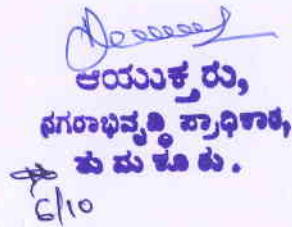 ಆಯುಕ್ತರು,
ನಗರಾಭಿವೃದ್ಧಿ ಪ್ರಾಧಿಕಾರ,
ತುಮಕೂರು.
6/10